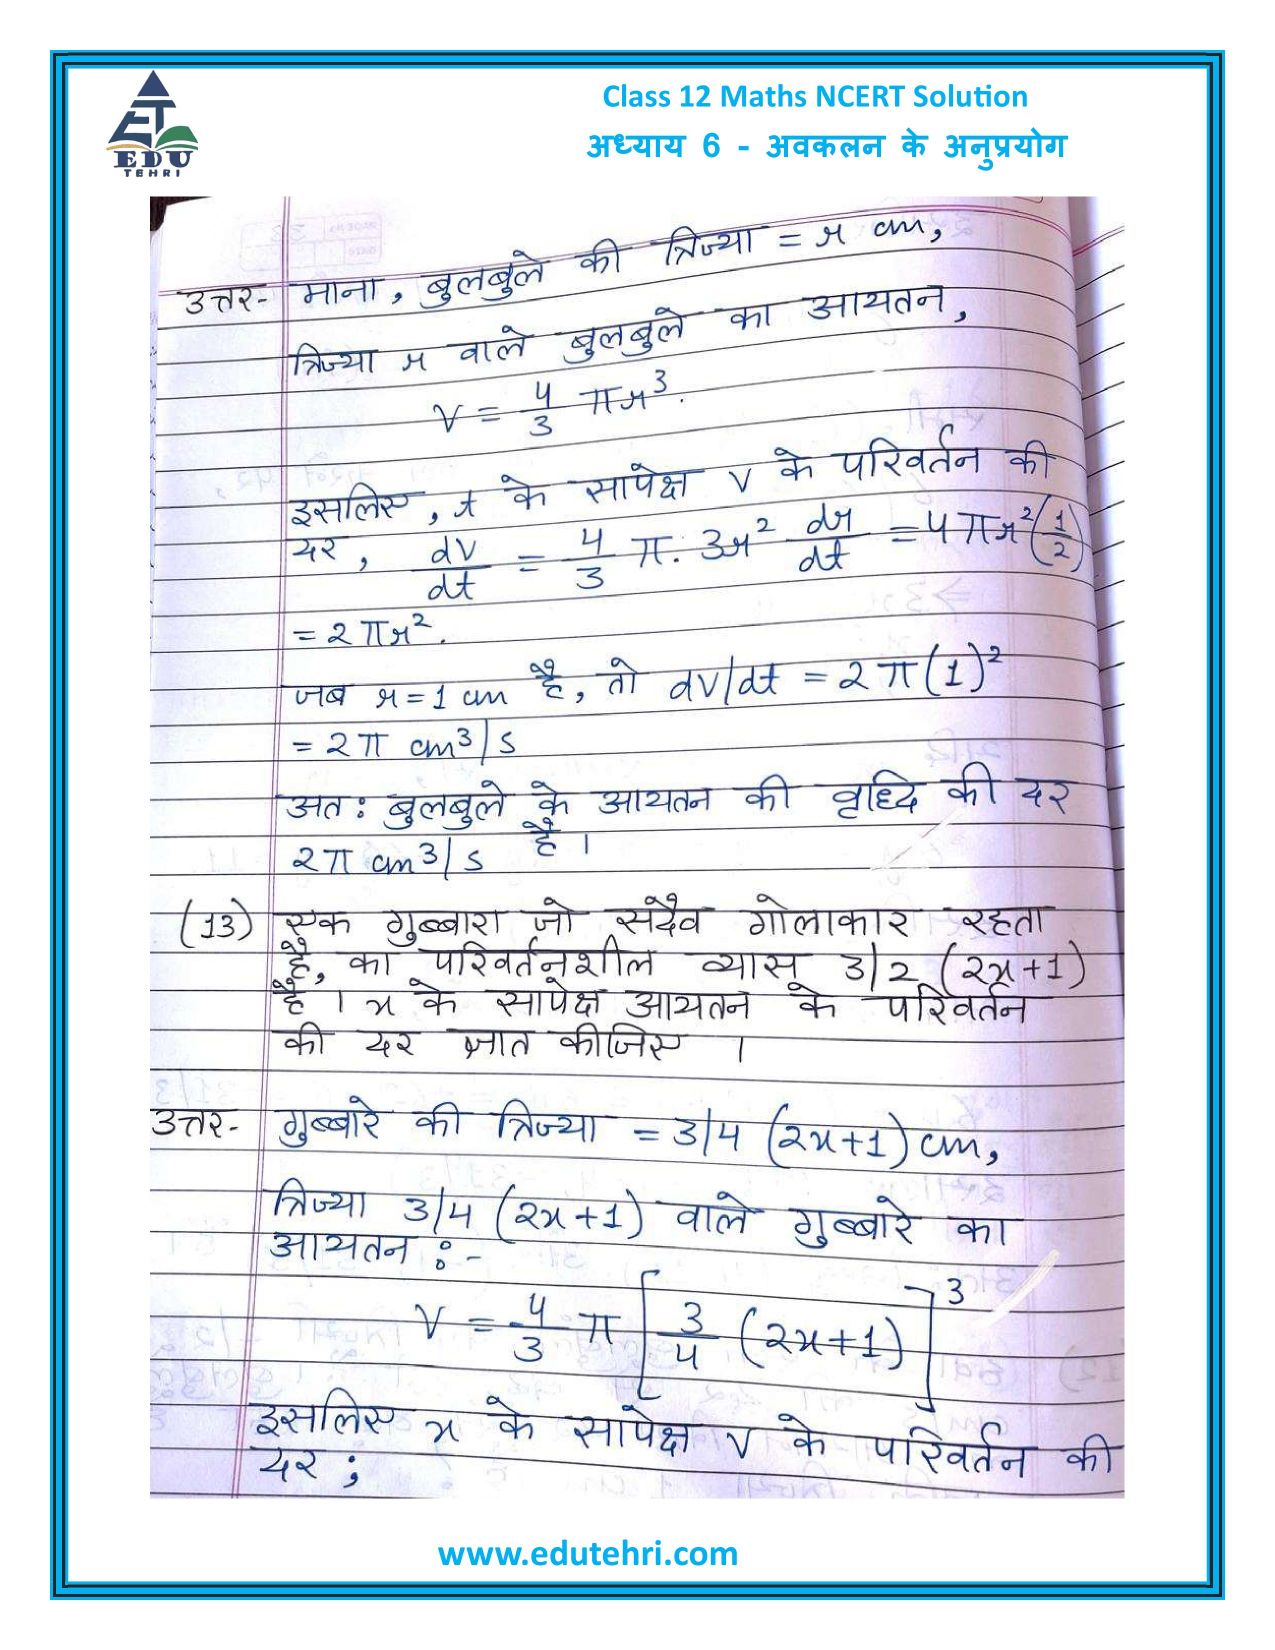 Class 12 Maths NCERT Solution
अध्याय 6 - अवकलन के अनुप्रयोग
ET
EDU
TEHRI
उत्तर- माना, बुलबुले की त्रिज्या = r cm,
त्रिज्या r वाले बुलबुले का आयतन,
V = 4/3 πr³.
इसलिए, t के सापेक्ष V के परिवर्तन की
दर, dV/dt = 4/3 π. 3r² dr/dt = 4πr²(1/2)
= 2πr².
जब r = 1 cm है, तो dV/dt = 2π(1)²
= 2π cm³/s
अत: बुलबुले के आयतन की वृध्दि की दर
2π cm³/s है।
(13) एक गुब्बारा जो सदैव गोलाकार रहता
है, का परिवर्तनशील व्यास 3/2 (2x+1)
है। x के सापेक्ष आयतन के परिवर्तन
की दर ज्ञात कीजिए।
उत्तर- गुब्बारे की त्रिज्या = 3/4 (2x+1) cm,
त्रिज्या 3/4 (2x+1) वाले गुब्बारे का
आयतन :-
V = 4/3 π [3/4 (2x+1)]³
इसलिए x के सापेक्ष V के परिवर्तन की
दर ;
www.edutehri.com